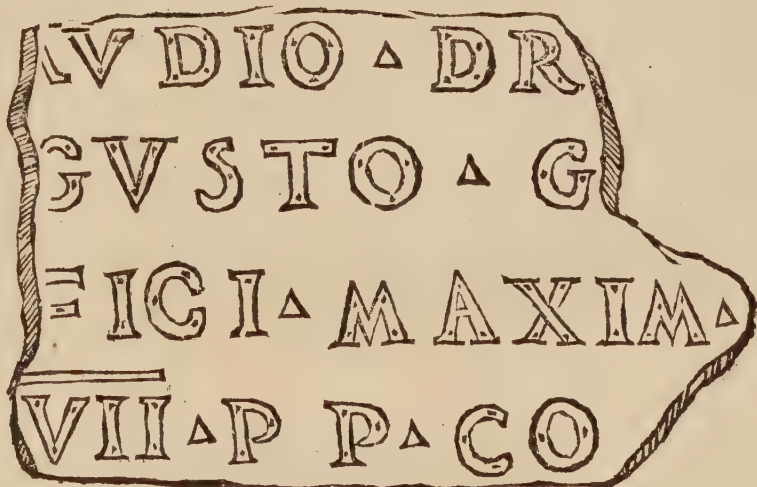 AVDIO ▵ DR
GVSTO ▵ G
FICI ▵ MAXIM ▵
V̅I̅I̅ ▵ P P ▵ CO